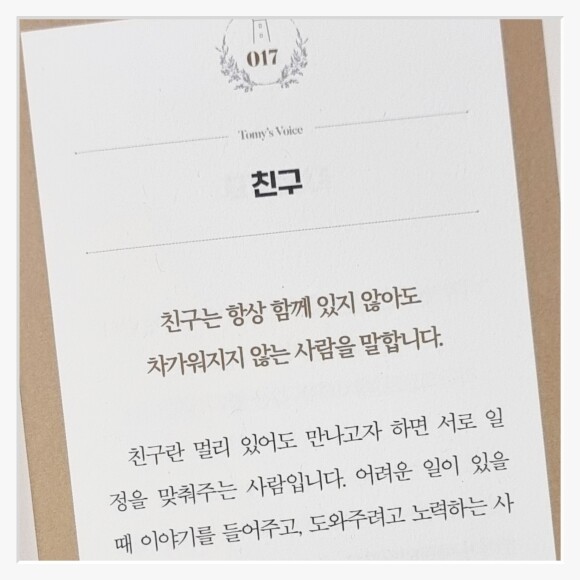 017
Tomy's Voice
친구
친구는 항상 함께 있지 않아도
차가워지지 않는 사람을 말합니다.
친구란 멀리 있어도 만나고자 하면 서로 일
정을 맞춰주는 사람입니다. 어려운 일이 있을
때 이야기를 들어주고, 도와주려고 노력하는 사